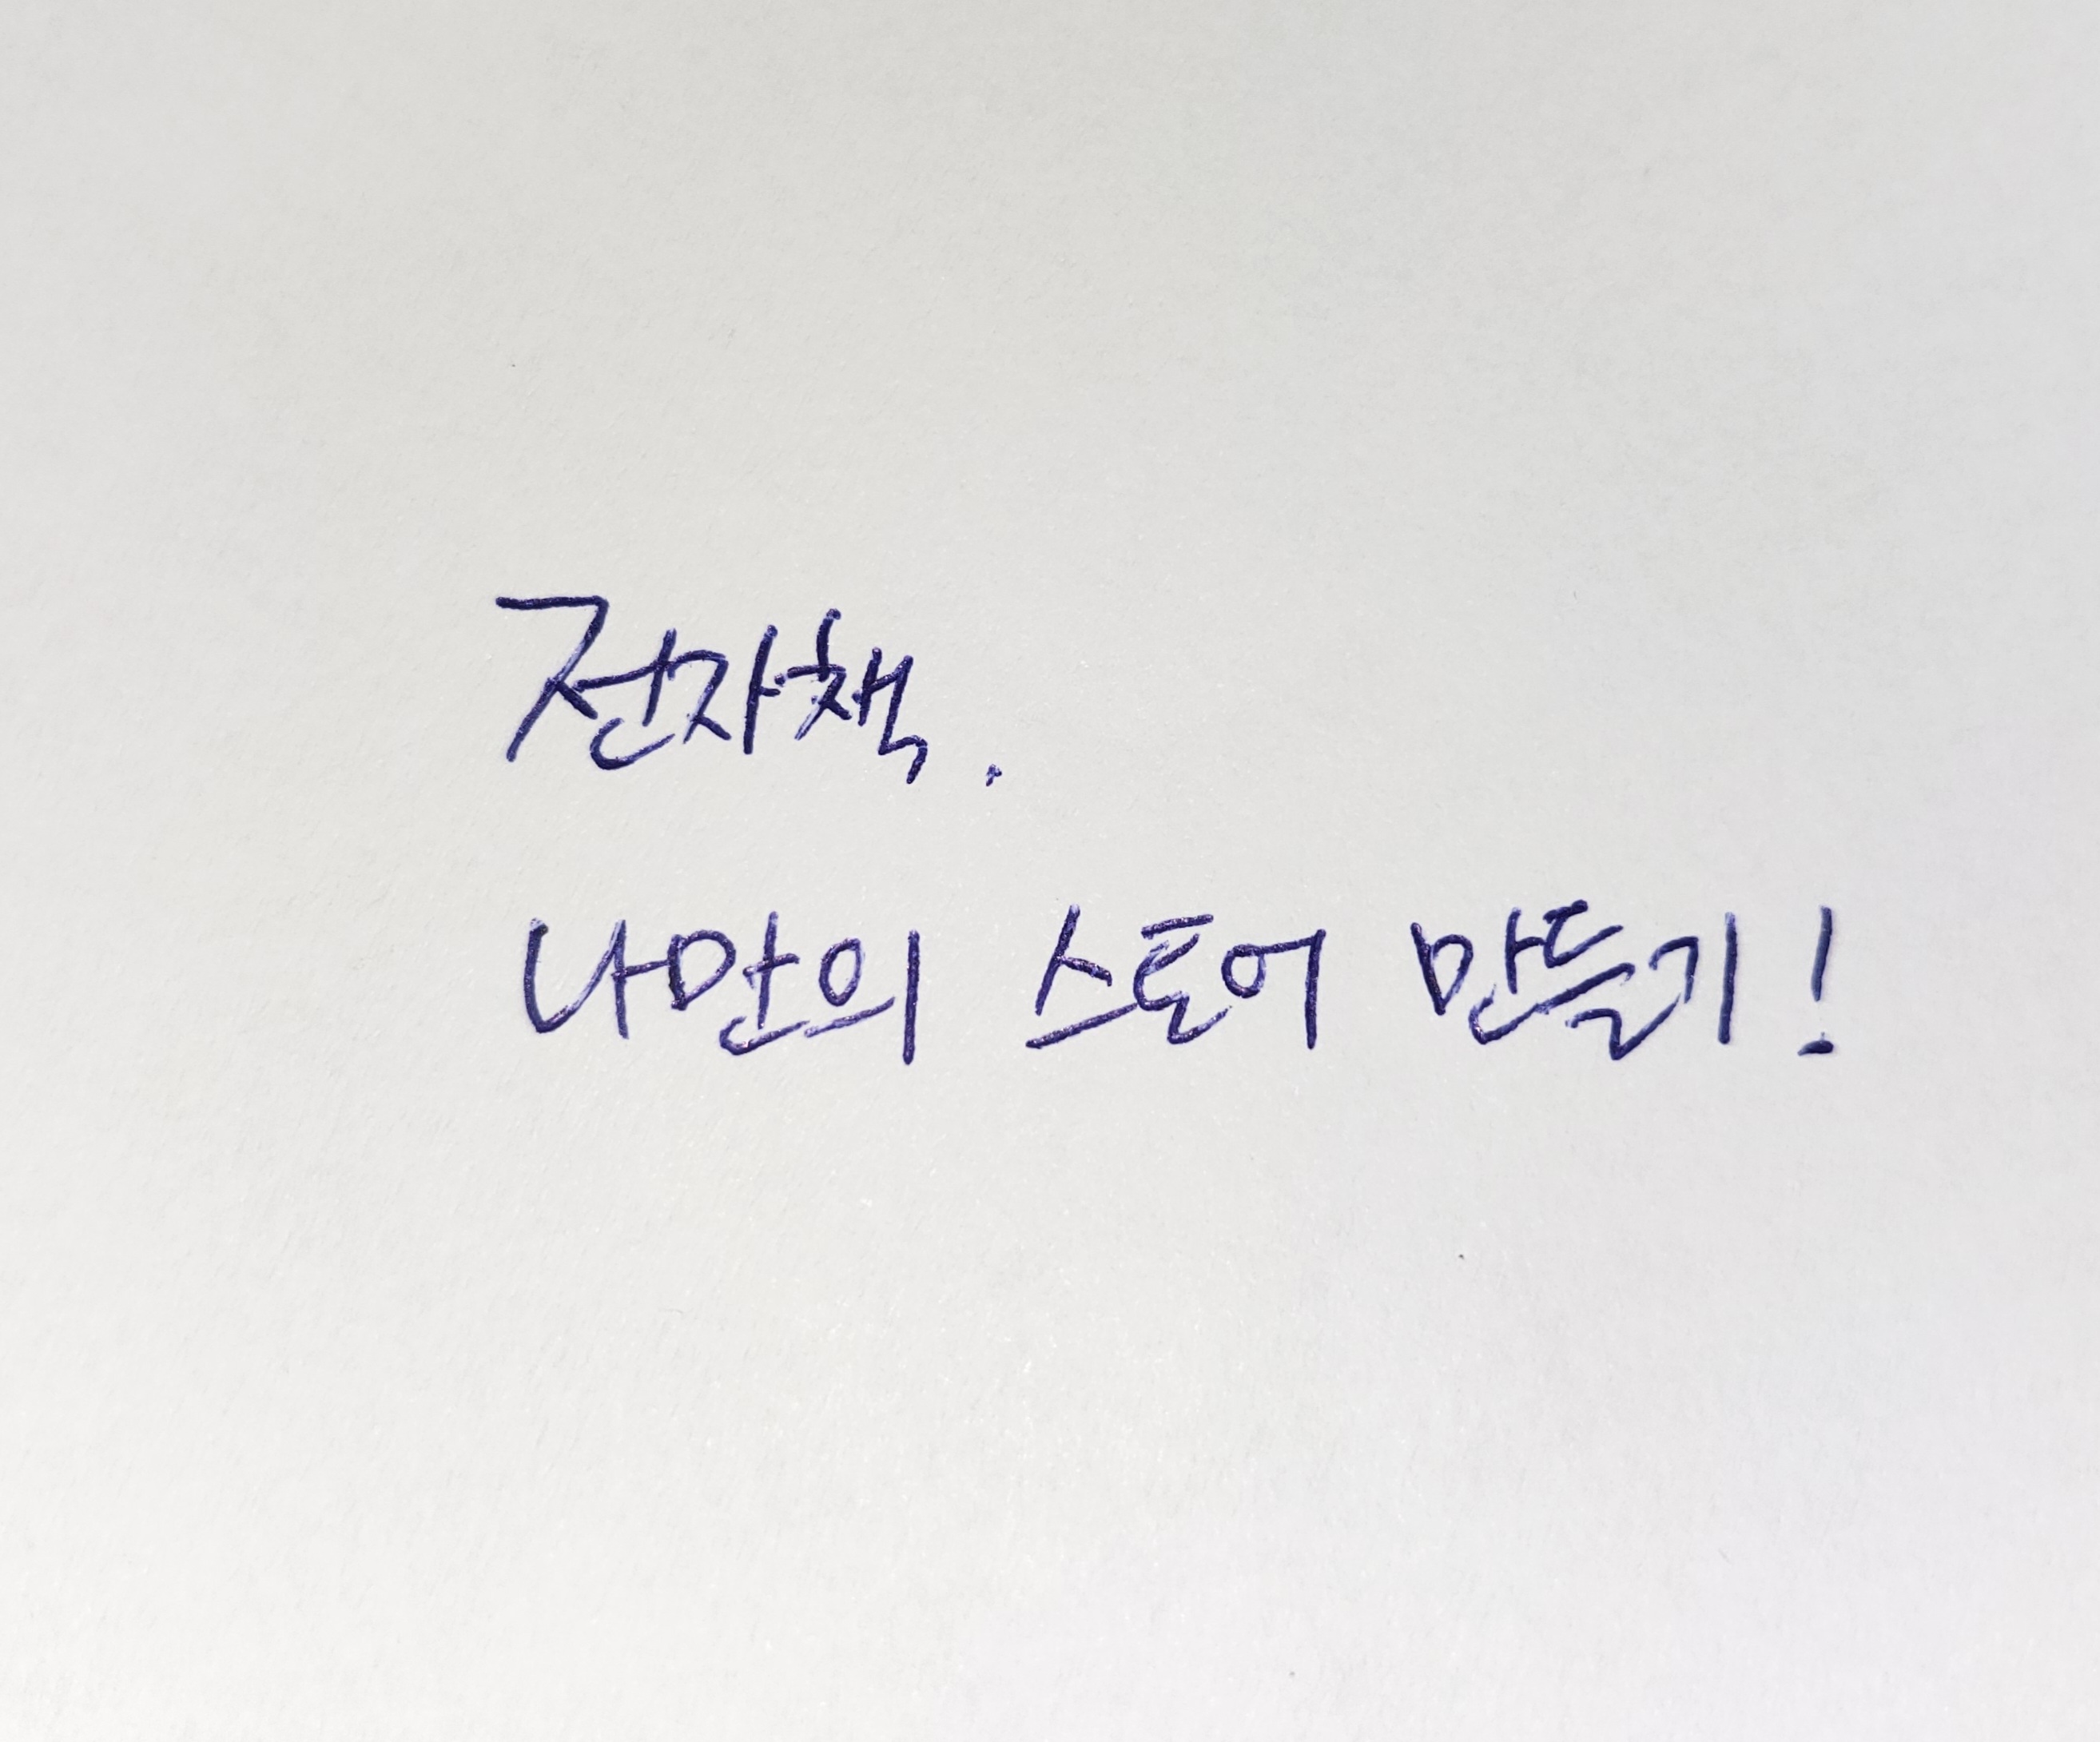 전자책.
나만의 스토어 만들기!